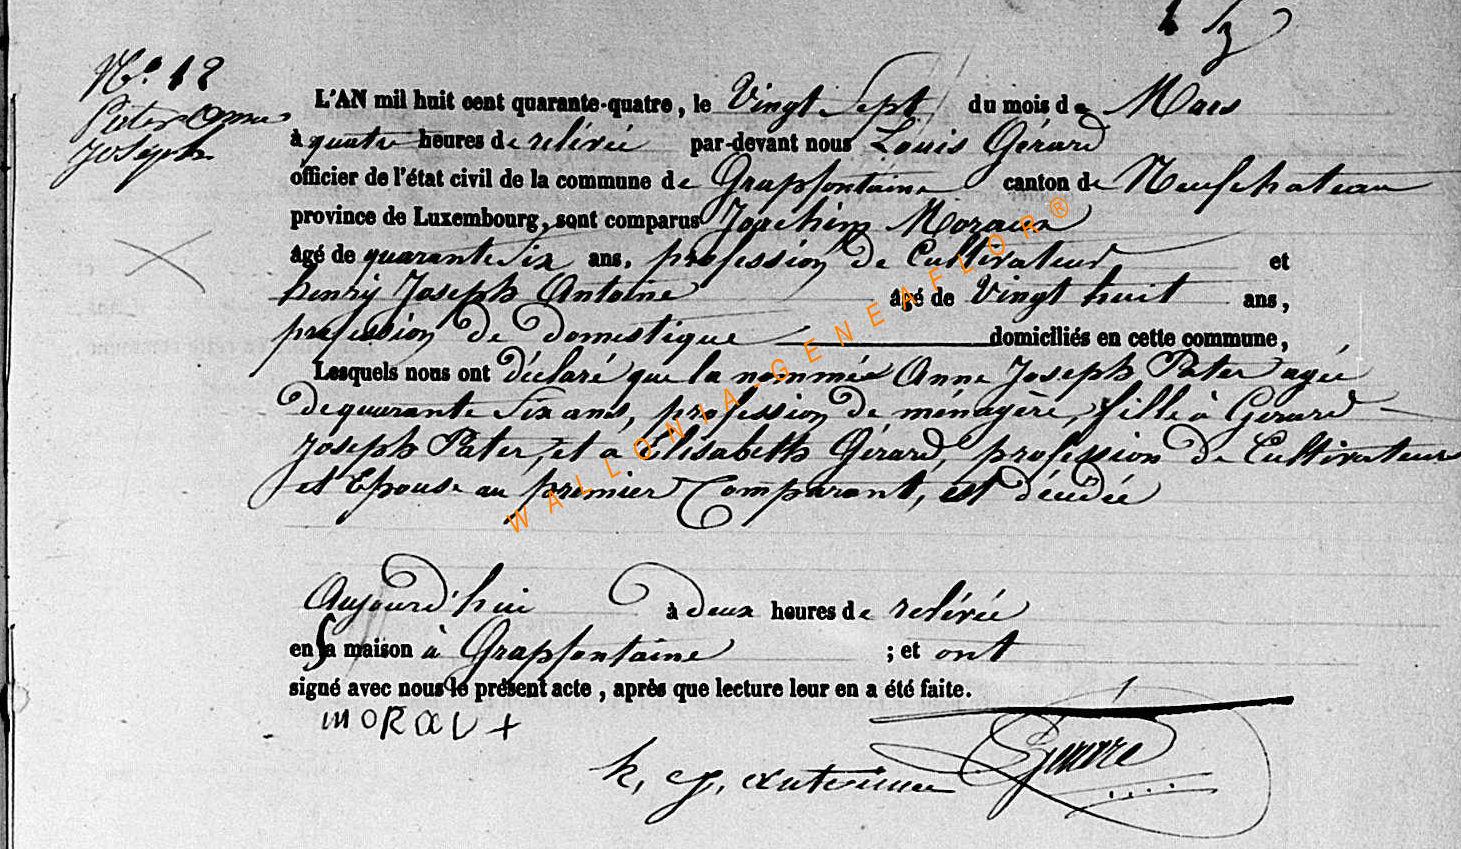 N.o 12
Pater Anne
Joseph
L'AN mil huit cent quarante-quatre, le Vingt Sept du mois de Mars
à quatre heures de relévée par-devant nous Louis Gérard
officier de l'état civil de la commune de Grapfontaine canton de Neufchateau
province de Luxembourg, sont comparus Joachim Moraux
âgé de quarante Six ans, profession de Cultivateur et
henry Joseph Antoine âgé de Vingt huit ans,
profession de domestique domiciliés en cette commune,
Lesquels nous ont déclaré que la nommée Anne Joseph Pater agée
de quarante Six ans, profession de ménagère, fille à Gérard
Joseph Pater, et a Elisabeth Gérard, profession de Cultivateurs
et Epouse au premier Comparant, est décédée
Aujourd'hui à deux heures de relévée
en sa maison à Grapfontaine ; et ont
signé avec nous le présent acte, après que lecture leur en a été faite.
MORAUX
h. j. antoinne
WALLONIA-GENEAFLOR®